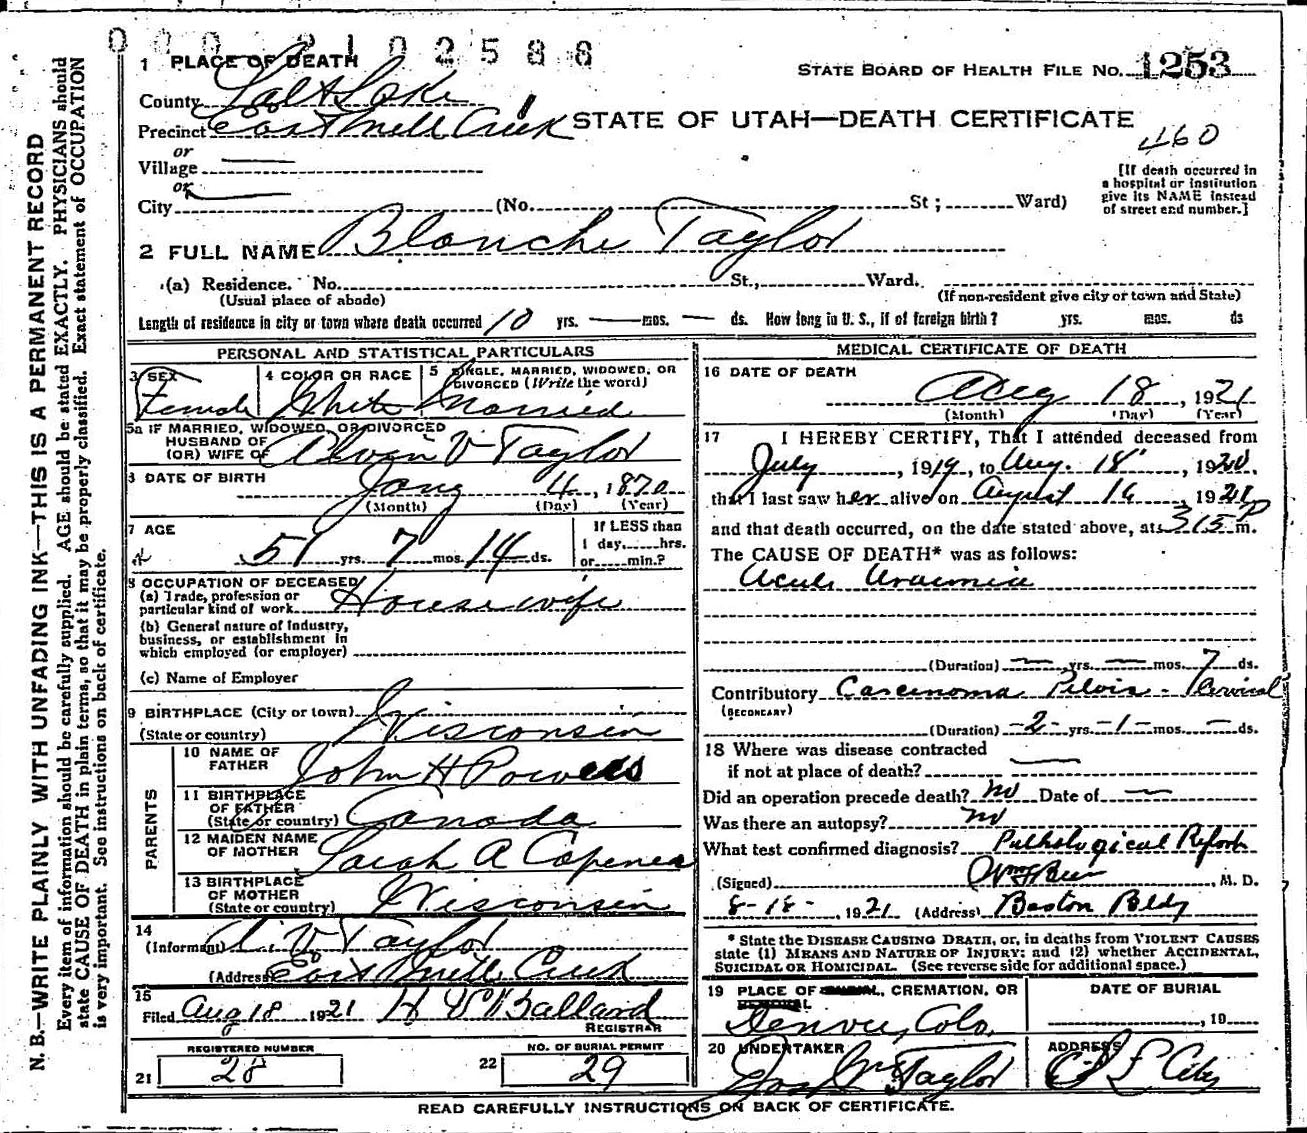 0 0 0 2 1 0 2 5 8 8
N. B.—WRITE PLAINLY WITH UNFADING INK—THIS IS A PERMANENT RECORD
Every item of information should be carefully supplied. AGE should be stated EXACTLY. PHYSICIANS should
state CAUSE OF DEATH in plain terms, so that it may be properly classified. Exact statement of OCCUPATION
is very important. See instructions on back of certificate.
1 PLACE OF DEATH
STATE BOARD OF HEALTH FILE NO. 1253
County Salt Lake
Precinct East Mill Creek
STATE OF UTAH—DEATH CERTIFICATE
460
or
Village
or
City (No. St; Ward)
[If death occurred in
a hospital or institution
give its NAME instead
of street and number.]
2 FULL NAME Blanche Taylor
(a) Residence. No. St., Ward.
(Usual place of abode)
(If non-resident give city or town and State)
Length of residence in city or town where death occurred 10 yrs. — mos. — ds. How long in U. S., if of foreign birth? yrs. mos. ds
PERSONAL AND STATISTICAL PARTICULARS
3 SEX
Female
4 COLOR OR RACE
White
5 SINGLE, MARRIED, WIDOWED, OR
DIVORCED (Write the word)
Married
5a IF MARRIED, WIDOWED, OR DIVORCED
HUSBAND OF
(OR) WIFE OF Alvin V Taylor
DATE OF BIRTH
Jany 4, 1870
(Month) (Day) (Year)
7 AGE
51 yrs. 7 mos. 14 ds.
If LESS than
1 day, hrs.
or min.?
8 OCCUPATION OF DECEASED
(a) Trade, profession or
particular kind of work Housewife
(b) General nature of Industry,
business, or establishment in
which employed (or employer)
(c) Name of Employer
9 BIRTHPLACE (City or town)
(State or country) Wisconsin
PARENTS
10 NAME OF
FATHER John H Powers
11 BIRTHPLACE
OF FATHER
(State or country) Canada
12 MAIDEN NAME
OF MOTHER Sarah A
13 BIRTHPLACE
OF MOTHER
(State or country) Wisconsin
14
(Informant) A. V Taylor
(Address) East Mill Creek
15
Filed Aug 18 1921 Balland
REGISTRAR
REGISTERED NUMBER
21 28
NO. OF BURIAL PERMIT
22 29
MEDICAL CERTIFICATE OF DEATH
16 DATE OF DEATH
Aug 18, 1921
(Month) (Day) (Year)
17 I HEREBY CERTIFY, That I attended deceased from
July, 1919, to Aug. 18, 1920,
that I last saw her alive on August 16, 1921
and that death occurred, on the date stated above, at 315 P m.
The CAUSE OF DEATH* was as follows:
Acute Uraemia
(Duration) — yrs. — mos. 7 ds.
Contributory Carcinoma Pelvis - Cervical
(SECONDARY)
(Duration) -2- yrs. -1- mos. — ds.
18 Where was disease contracted
if not at place of death? —
Did an operation precede death? No Date of —
Was there an autopsy? No
What test confirmed diagnosis? Pathological Report
(Signed) , M. D.
8-18-, 1921 (Address) Boston Bldg
* State the DISEASE CAUSING DEATH, or, in deaths from VIOLENT CAUSES
state (1) MEANS AND NATURE OF INJURY; and (2) whether ACCIDENTAL,
SUICIDAL OR HOMICIDAL. (See reverse side for additional space.)
19 PLACE OF BURIAL, CREMATION, OR
REMOVAL
Denver, Colo.
DATE OF BURIAL
, 19
20 UNDERTAKER
Jos Wm Taylor
ADDRESS
S L City
READ CAREFULLY INSTRUCTIONS ON BACK OF CERTIFICATE.